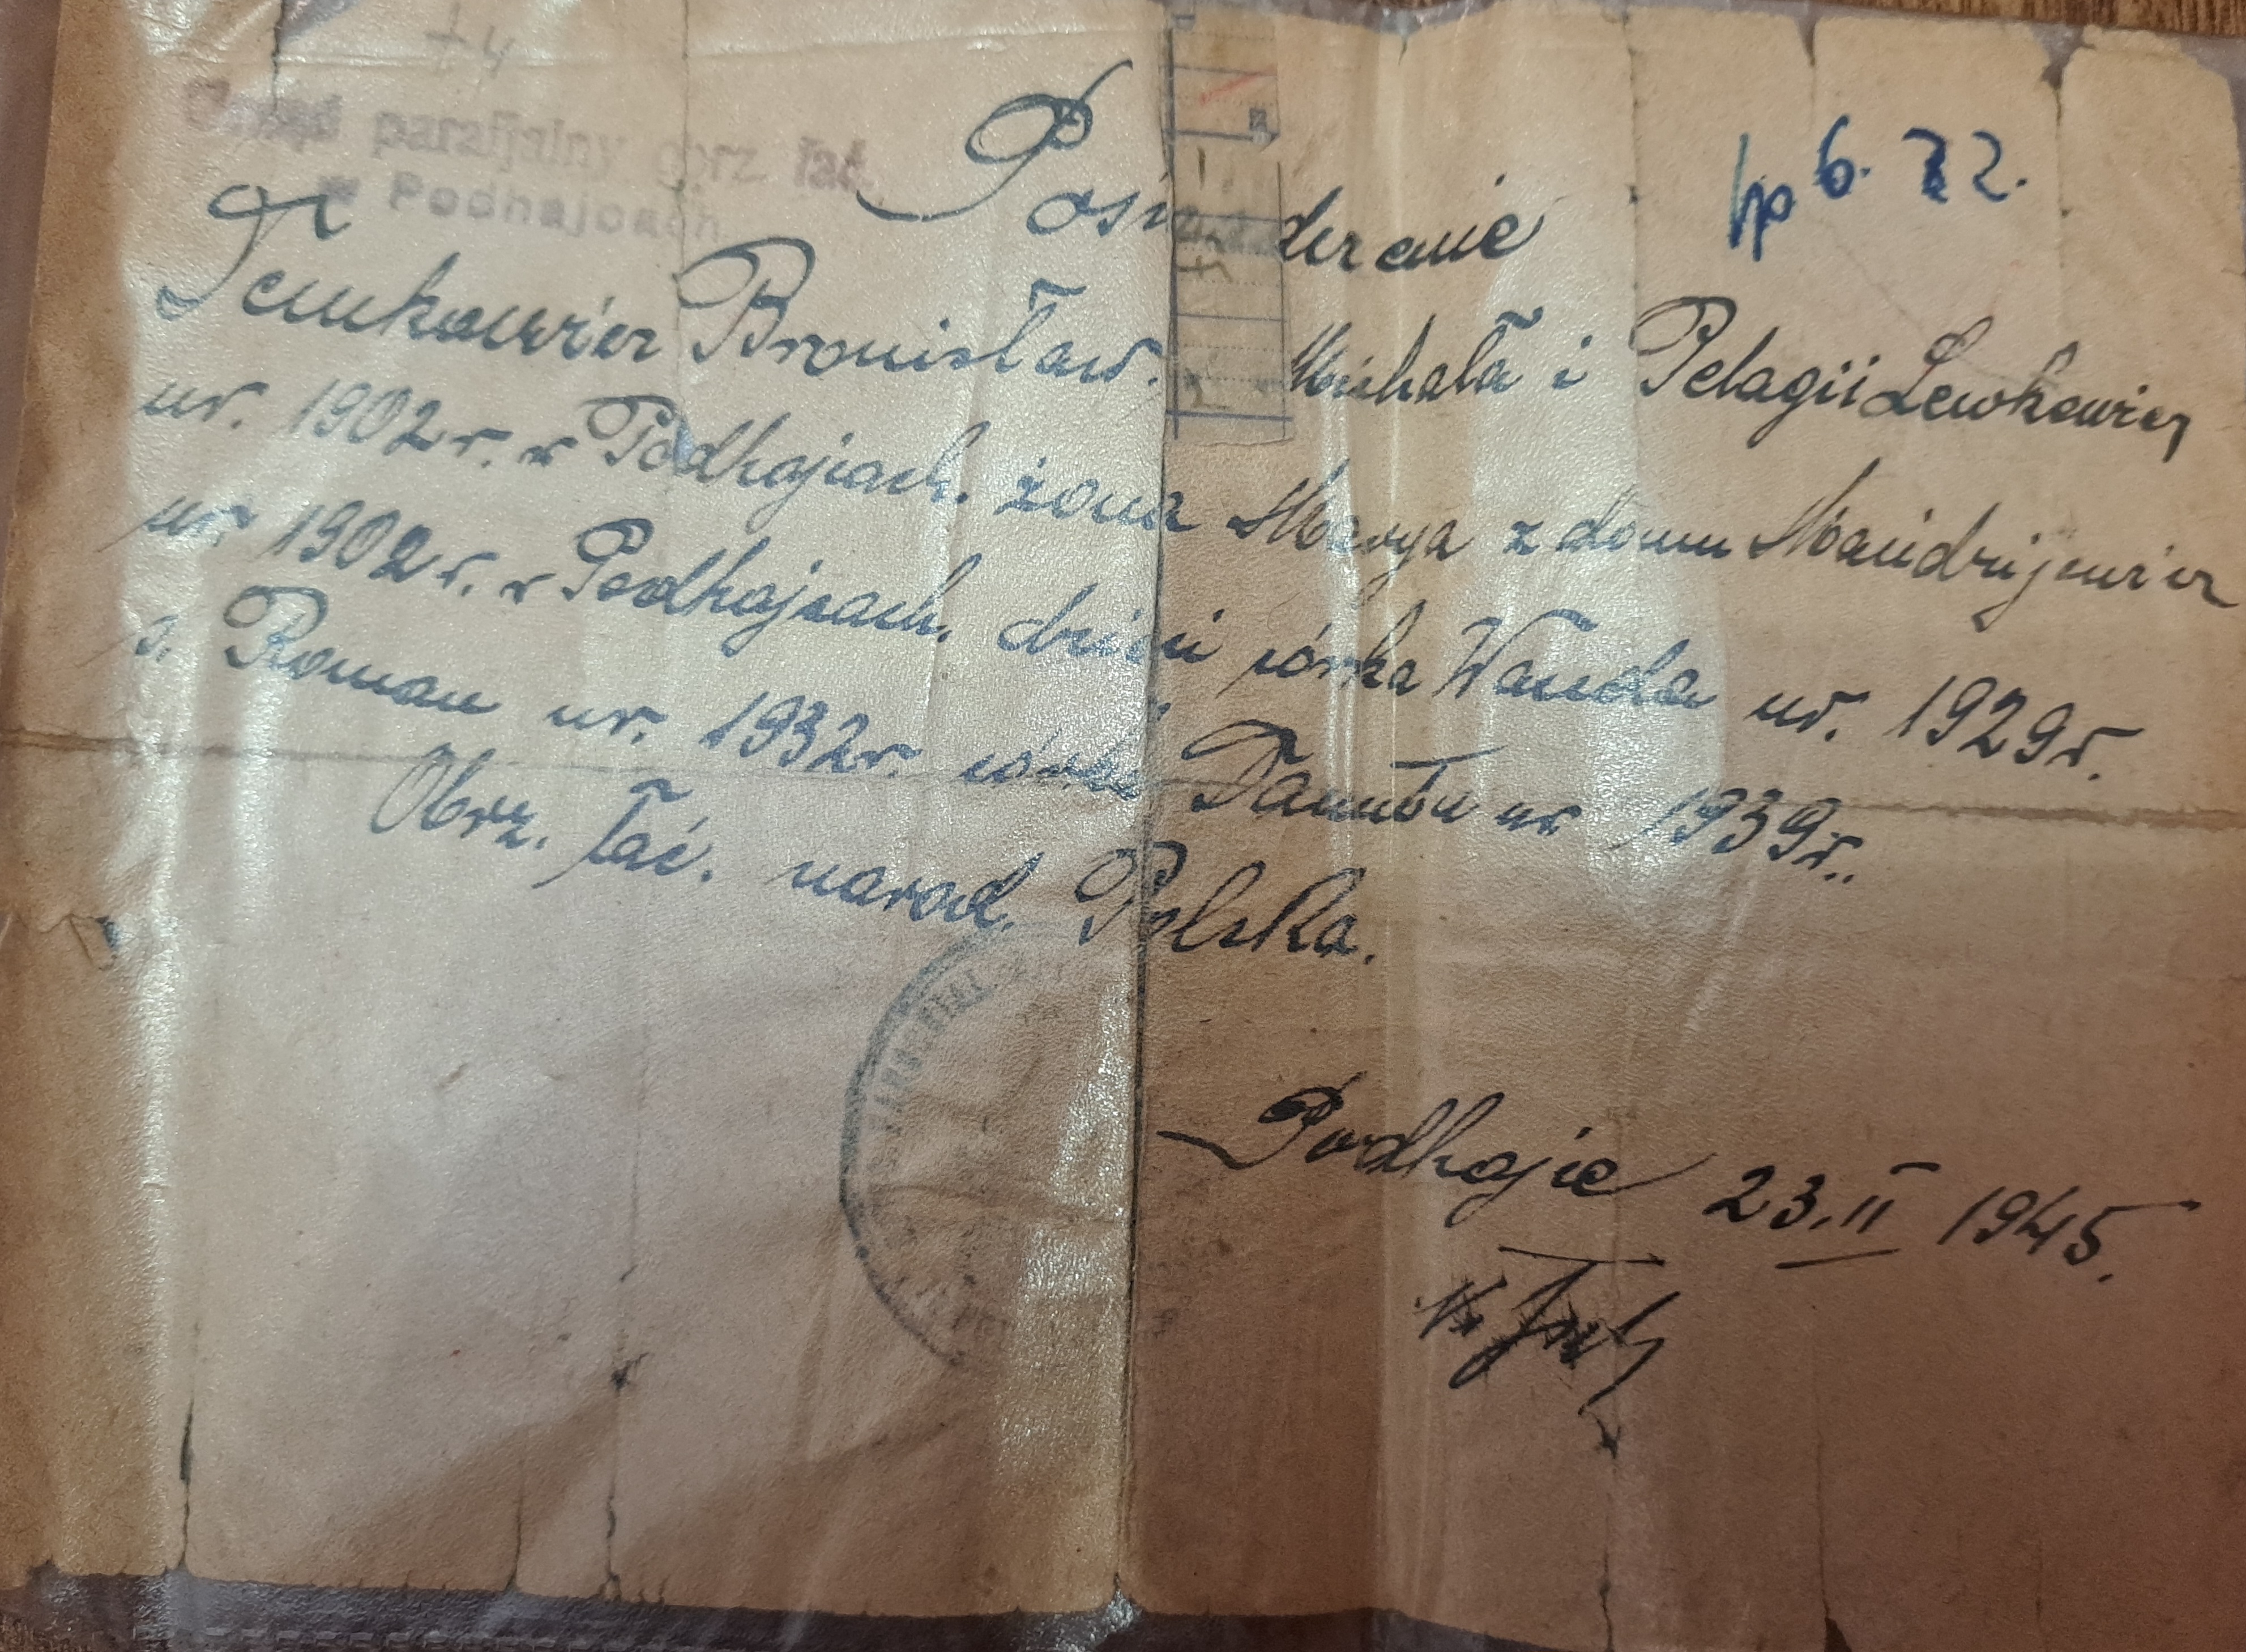 +4
Urząd parafjalny obrz łać.
w Podhajcach
lp 6. 22.
Poświadczenie
Tenkowicz Bronisław. Michała i Pelagii Lewkowicz
ur. 1902 r. w Podhajcach. żona Marya z domu Mandryjewicz
ur. 1902 r. w Podhajcach. dzieci córka Wanda ur. 1929 r.
s. Roman ur. 1932 r. córka Danuta ur 1939 r..
Obrz. łać. narod. Polska.
Podhajce 23.II 1945.